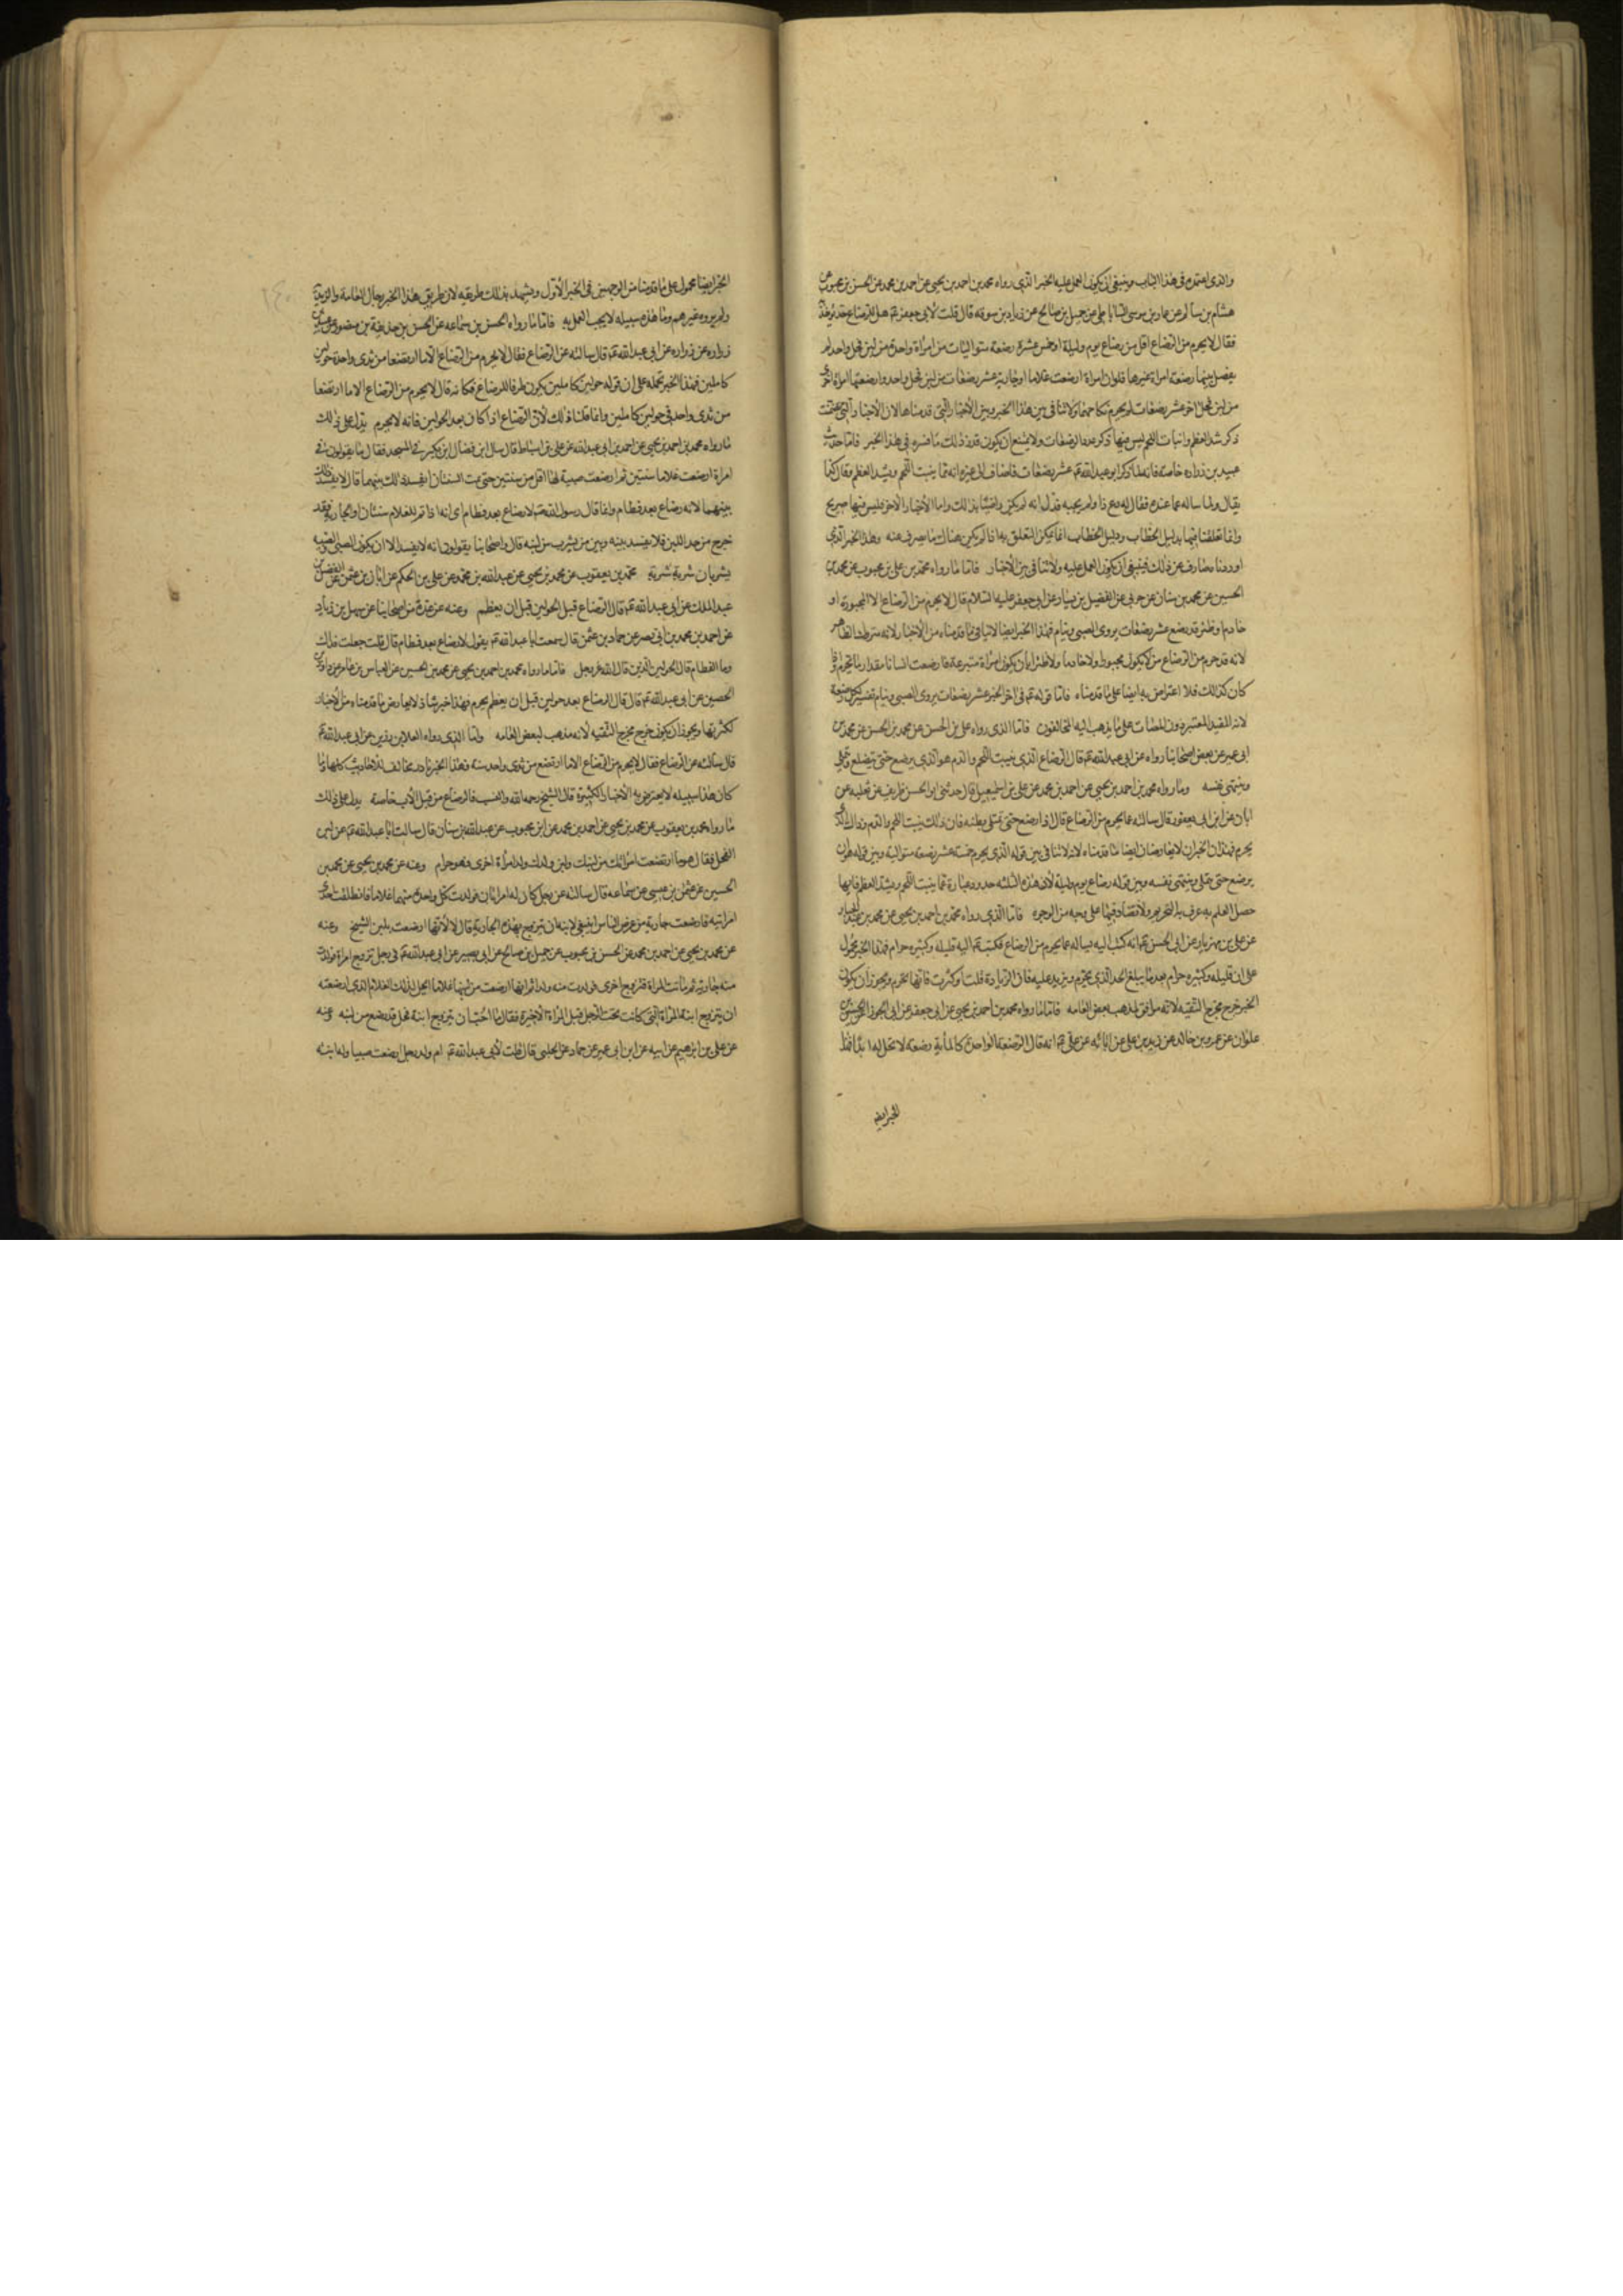 والذى اعتمده فى هذا الباب وينبغى ان يكون العمل عليه الخبر الذى رواه محمد بن احمد بن يحيى عن احمد بن محمد عن الحسن بن محبوب عن
هشام بن سالم عن عمار بن موسى الساباطى عن جميل بن صالح عن زياد بن سوقه قال قلت لأبى جعفر عم هل للرضاع حد يوخذ به
فقال لا يحرم من الرضاع اقل من رضاع يوم وليلة او خمس عشرة رضعة متواليات من امراة واحدة من لبن فحل واحد لم
يفصل بينها رضعة امراة غيرها فلو ان امراة ارضعت غلاما او جارية عشر رضعات من لبن فحل واحد وارضعتها امراة اخرى
من لبن فحل اخر عشر رضعات لم يحرم نكاحهما ولا تنافى بين هذا الخبر وبين الأخبار التى قدمناها لان الأخبار التى تضمنت
ذكر شد العظم وانبات اللحم ليس فيها ذكر عدد الرضعات ولا يمتنع ان يكون قدر ذلك ما فسره فى هذا الخبر فاما حديث
عبيد بن زراره خاصة فانه لما ذكر ابو عبد الله عم عشر رضعات فاضاف الى غيره انه مما ينبت اللحم ويشد العظم وقال كما
يقال ولما ساله عما عنده فقال له دع ذا ولم يجبه فدل انه لم يكن راضيا بذلك واما الأخبار الاخر فليس فيها صريح
وانما تعلقنا فيها بدليل الخطاب ودليل الخطاب انما يمكن التعلق بها اذا لم يكن هناك ما يصرف عنه وهذا الخبر الذى
اوردنا صارف عن ذلك فينبغى ان يكون العمل عليه ولا تنافى بين الأخبار فاما ما رواه محمد بن على بن محبوب عن محمد بن
الحسين عن محمد بن سنان عن حريز عن الفضيل بن يسار عن ابى جعفر عليه السلام قال لا يحرم من الرضاع الا المجبورة او
خادم او ظئر قد رضع عشر رضعات يروى الصبى وينام فهذا الخبر ايضا لا ينافى ما قدمناه من الأخبار لانه متروك الظاهر
لانه قد حرم من الرضاع من لا يكون مجبورا ولا خادما ولا ظئرا بان يكون امراة متبرعة فارضعت انسانا مقدار ما يحرم فاذا
كان كذلك فلا اعتراض به ايضا على ما قدمناه فاما قوله عم فى اخر الخبر عشر رضعات يروى الصبى وينام تفسير لكل رضعة
لانه المفيد المعتبر دون المصات على ما يذهب اليه المخالفون فاما الذى رواه على بن الحسن عن محمد بن الحسن عن محمد بن
ابى عمير عن بعض اصحابنا رواه عن ابى عبد الله عم قال الرضاع الذى ينبت اللحم والدم هو الذى يرضع حتى يتضلع ويمتلى
وينتهى نفسه وما رواه محمد بن احمد بن يحيى عن احمد بن محمد عن على بن اسمعيل قال حدثنى ابو الحسن ظريف عن ثعلبه عن
ابان عن ابن ابى يعفور قال سالته عما يحرم من الرضاع قال اذا رضع حتى يمتلى بطنه فان ذلك ينبت اللحم والدم وذاك الذى
يحرم فهذان الخبران لا يعارضان ايضا ما قدمناه لانه لا تنافى بين قوله الذى يحرم خمسة عشر رضعه متواليه وبين قوله هو ان
يرضع حتى يمتلى وينتهى نفسه وبين قوله رضاع يوم وليلة لأن هذه الثلثه حدود عبارة عما ينبت اللحم ويشد العظم فبايها
حصل العلم به عرف به التحريم ولا تضاد فيها على وجه من الوجوه فاما الذى رواه محمد بن احمد بن يحيى عن محمد بن عبد الجبار
عن على بن مهزيار عن ابى الحسن عم انه كتب اليه يساله عما يحرم من الرضاع فكتب عم اليه قليله وكثيره حرام فهذا الخبر محمول
على ان قليله وكثيره حرام بعد ما يبلغ الحد الذى يحرم ويزيد عليه فان الزيادة قلت او كثرت فانها تحرم ويجوز ان يكون
الخبر خرج مخرج التقيه لانه موافق لمذهب بعض العامه فاما ما رواه محمد بن احمد بن يحيى عن ابى جعفر عن ابى الجوزا عن الحسين بن
علوان عن عمرو بن خالد عن زيد بن على عن ابائه عن على عم انه قال الرضعة الواحدة كالمأية رضعه لا تحل له ابدا فهذا
الخبر ايضا
الخبر ايضا محمول على ما قدمنا من الوجهين فى الخبر الأول ويشهد بذلك طريقه لان طريق هذا الخبر رجال العامة والزيدية
ولم يروه غيرهم وما هذه سبيله لا يجب العمل به فاما ما رواه الحسن بن سماعه عن الحسن بن حذيفة بن منصور عن عبيد بن
زراره عن زراره عن ابى عبد الله عم قال سالته عن الرضاع فقال لا يحرم من الرضاع الا ما ارتضعا من ثدى واحد حولين
كاملين فهذا الخبر نحمله على ان قوله حولين كاملين يكون ظرفا للرضاع فكانه قال لا يحرم من الرضاع الا ما ارتضعا
من ثدى واحد فى حولين كاملين وانما قلنا ذلك لأن الرضاع اذا كان بعد الحولين فانه لا يحرم يدل على ذلك
ما رواه محمد بن احمد بن يحيى عن احمد بن ابى عبد الله عن على بن اسباط قال سال ابن فضال ابن بكير فى المسجد فقال ما يقولون فى
امراة ارضعت غلاما سنتين ثم ارضعت صبية لها اقل من سنتين حتى تمت السنتان ايفسد ذلك بينهما قال لا يفسد ذلك
بينهما لانه رضاع بعد فطام وانما قال رسول الله ص لا رضاع بعد فطام اى انه اذا تم للغلام سنتان او الجارية فقد
خرج من حد اللبن فلا يفسد بينه وبين من يشرب من لبنه قال واصحابنا يقولون انه لا يفسد الا ان يكون الصبى والصبية
يشربان شربة شربة محمد بن يعقوب عن محمد بن يحيى عن عبد الله بن محمد عن على بن الحكم عن ابان بن عثمن عن الفضل بن
عبد الملك عن ابى عبد الله عم قال الرضاع قبل الحولين قبل ان يفطم وعنه عن عدة من اصحابنا عن سهل بن زياد
عن احمد بن محمد بن ابى نصر عن حماد بن عثمن قال سمعت ابا عبد الله عم يقول لا رضاع بعد فطام قال قلت جعلت فداك
وما الفطام قال الحولين الذين قال الله عز وجل فاما ما رواه محمد بن احمد بن يحيى عن محمد بن الحسين عن العباس بن عامر عن داود بن
الحصين عن ابى عبد الله عم قال قال الرضاع بعد حولين قبل ان يفطم يحرم فهذا خبر شاذ لا يعارض ما قدمناه من الأخبار
لكثرتها ويجوز ان يكون خرج مخرج التقيه لأنه مذهب لبعض العامه واما الذى رواه العلا بن رزين عن ابى عبد الله عم
قال سالته عن الرضاع فقال لا يحرم من الرضاع الا ما ارتضع من ثدى واحد سنة فهذا الخبر نادر مخالف للاحاديث كلها وما
كان هذا سبيله لا يعترض به الأخبار الكثيرة قال الشيخ رحمه الله والنسب فالرضاع من قبل الأب خاصة يدل على ذلك
ما رواه محمد بن يعقوب عن محمد بن يحيى عن احمد بن محمد عن ابن محبوب عن عبد الله بن سنان قال سالت ابا عبد الله عم عن لبن
الفحل فقال هو ما ارتضعت امراتك من لبنك ولبن ولدك ولد امرأة اخرى فهو حرام وعنه عن محمد بن يحيى عن محمد بن
الحسين عن عثمن بن عيسى عن سماعه قال سالته عن رجل كان له امراتان فولدت كل واحدة منهما غلاما فانطلقت احدى
امراتيه فارضعت جارية من عرض الناس اينبغى لابنه ان يتزوج بهذه الجارية قال لا لأنها ارضعت بلبن الشيخ وعنه
عن محمد بن يحيى عن احمد بن محمد عن الحسن بن محبوب عن جميل بن صالح عن ابى بصير عن ابى عبد الله عم فى رجل تزوج امراة فولدت
منه جارية ثم ماتت المراة فتزوج اخرى فولدت منه ولدا ثم انها ارضعت من لبنها غلاما ايحل لذلك الغلام الذى ارضعته
ان يتزوج ابنة المراة التى كانت تحت الرجل قبل المراة الأخيرة فقال ما احب ان يتزوج ابنة فحل قد رضع من لبنه وعنه
عن على بن ابرهيم عن ابيه عن ابن ابى عمير عن حماد عن الحلبى قال قلت لأبى عبد الله عم ام ولد رجل ارضعت صبيا وله ابنه